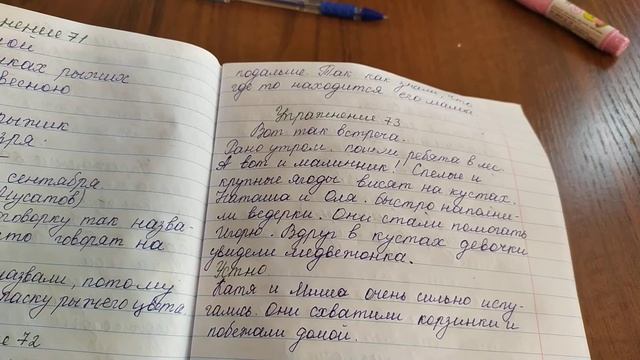 нение 71
ной
иках рыжих
весною
рыжик
зря.
сентября
Мусатов)
говорку так назва-
то говорят на
назвали, потому
раску рыжего цвета.
е 72
подальше. Так как знали, что
где то находится его мама
Упражнение 73
Вот так встреча.
Рано утром. пошли ребята в лес.
А вот и малинник! Спелые и
крупные ягоды висят на кустах.
Наташа и Оля. быстро наполни-
ли ведерки. Они стали помогать
Игорю. Вдруг в кустах девочки
увидели медвежонка.
Устно
Катя и Миша очень сильно испу-
гались. Они схватили корзинки и
побежали домой.